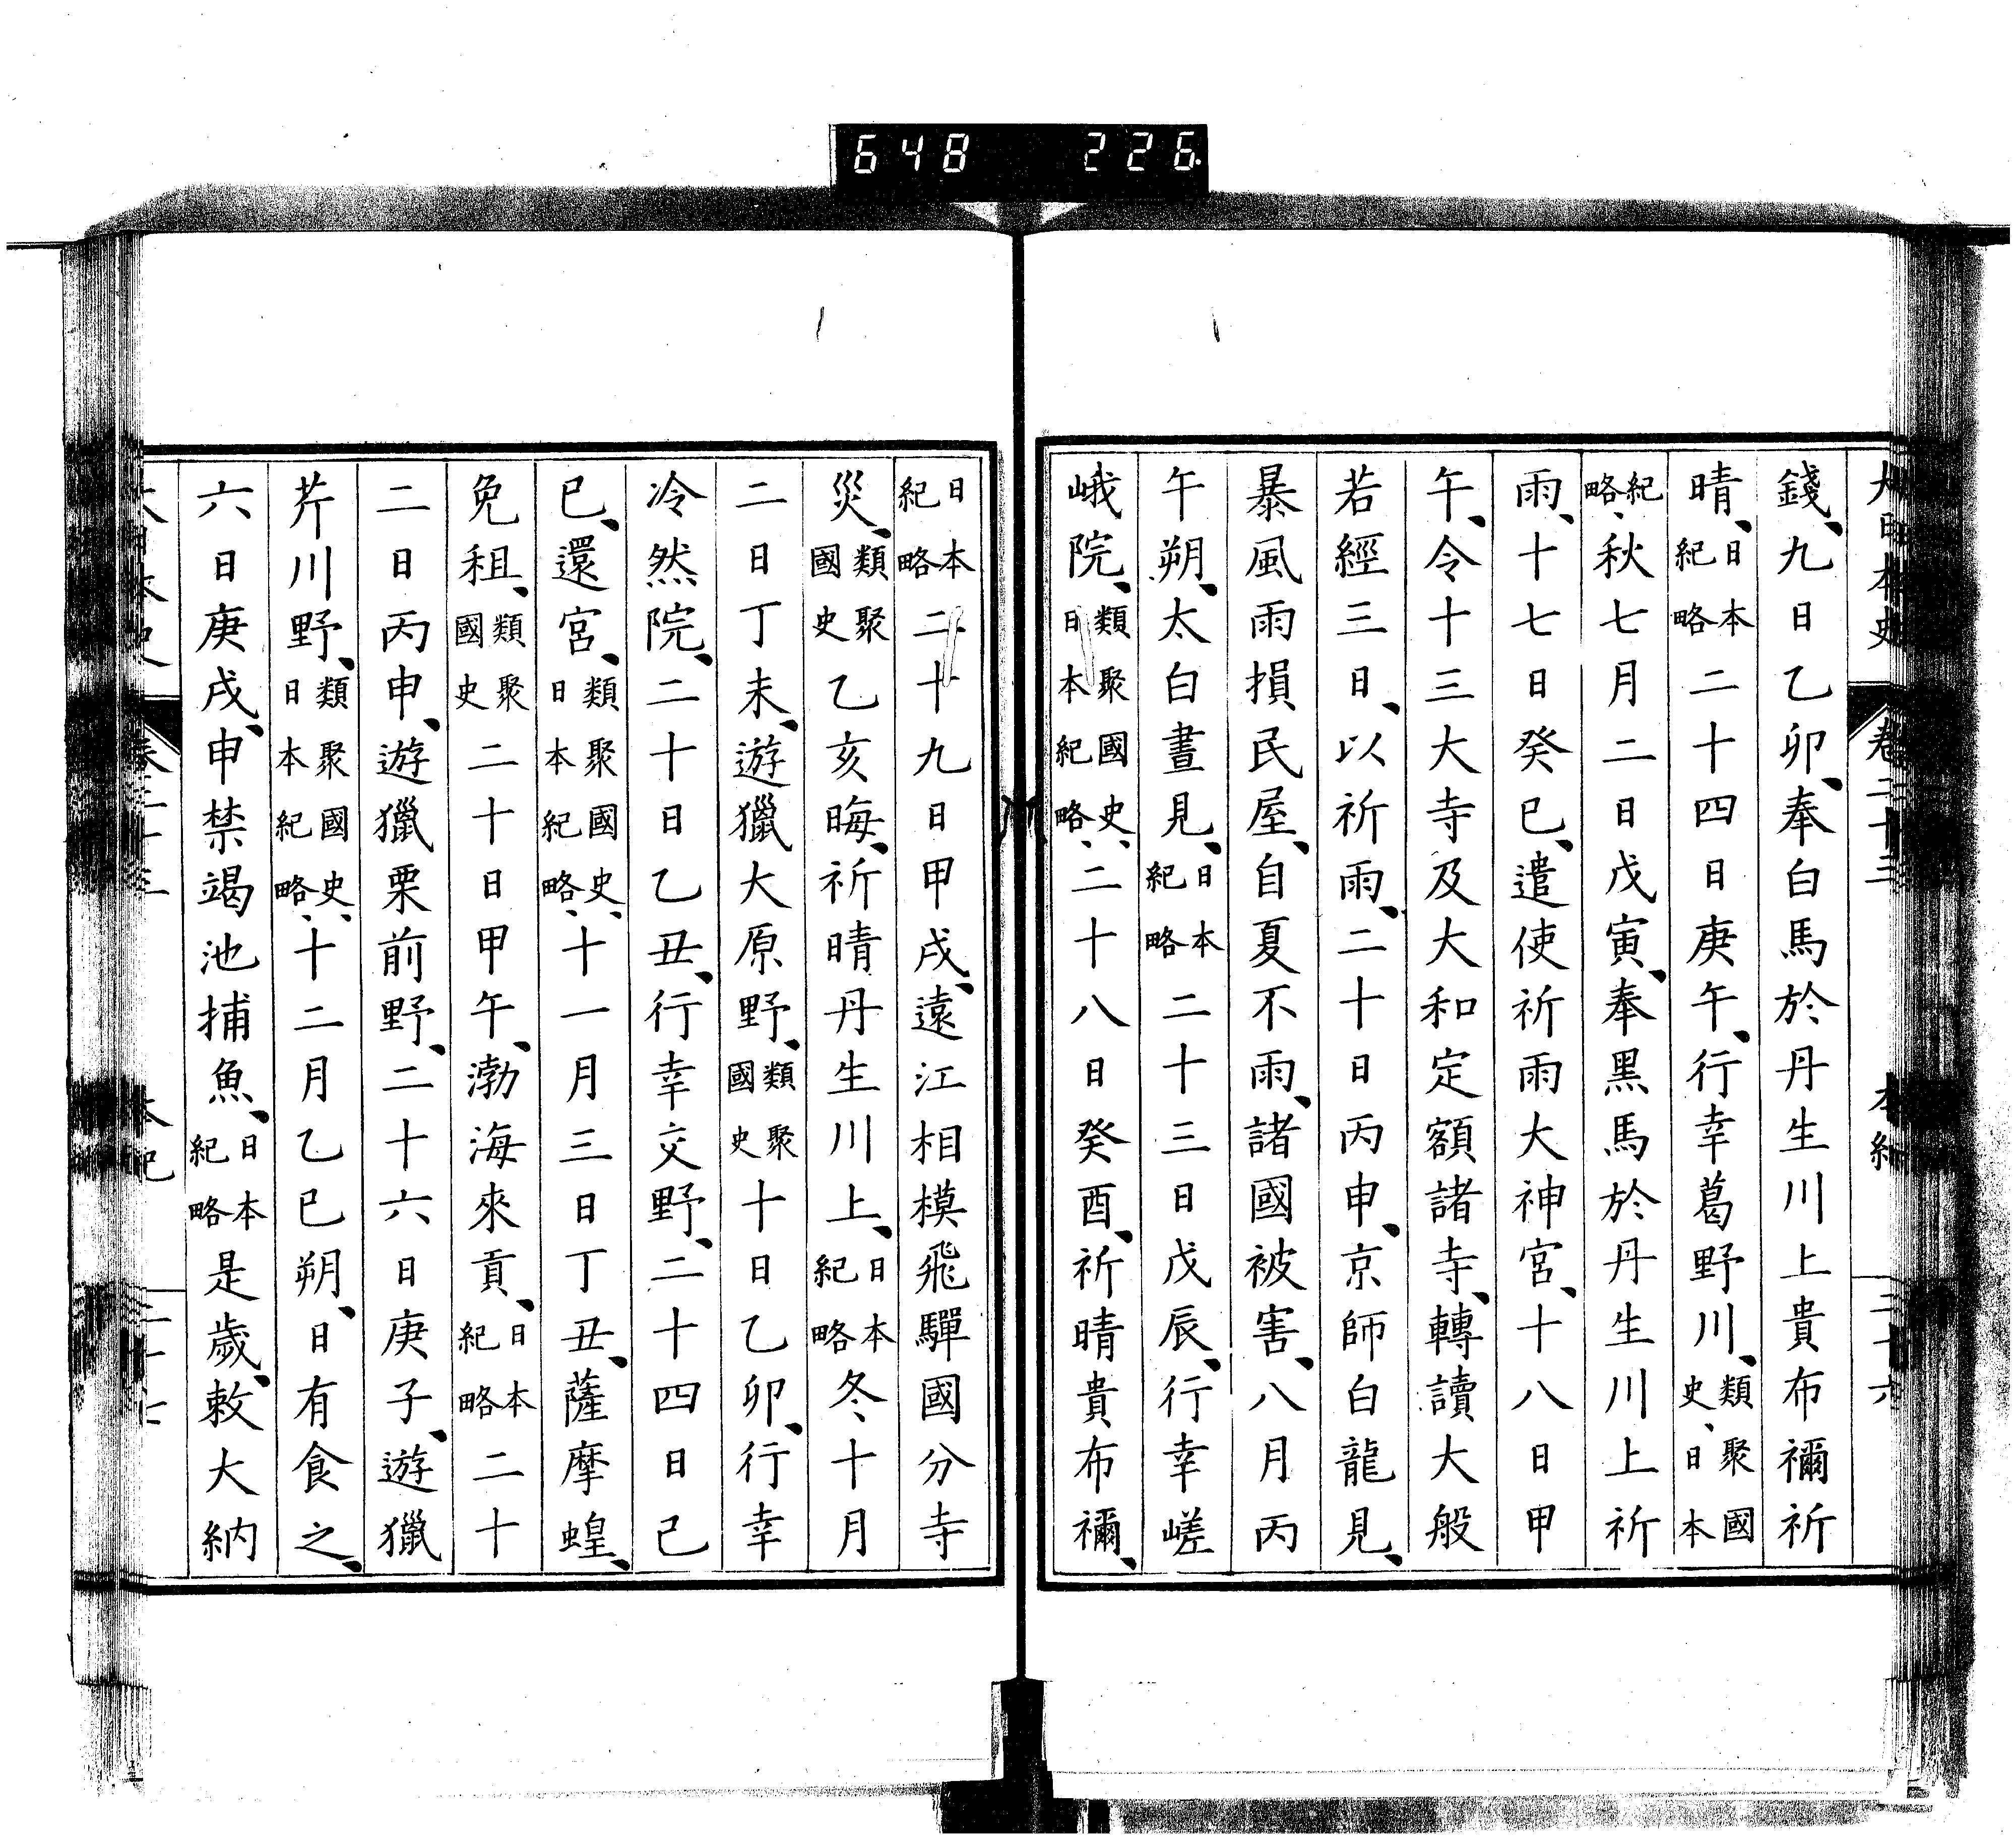 648 226
大日本史 卷二十三 本紀 二十六
錢、九日乙卯、奉白馬於丹生川上貴布禰祈
晴、日本紀略二十四日庚午、行幸葛野川、類聚國史、日本
紀略、秋七月二日戊寅、奉黑馬於丹生川上祈
雨、十七日癸巳、遣使祈雨大神宮、十八日甲
午、令十三大寺及大和定額諸寺、轉讀大般
若經三日、以祈雨、二十日丙申、京師白龍見、
暴風雨損民屋、自夏不雨、諸國被害、八月丙
午朔、太白晝見、日本紀略二十三日戊辰、行幸嵯
峨院、類聚國史、日本紀略、二十八日癸酉、祈晴貴布禰、
日本紀略二十九日甲戌、遠江相模飛驒國分寺
災、類聚國史乙亥晦、祈晴丹生川上、日本紀略冬十月
二日丁未、遊獵大原野、類聚國史十日乙卯、行幸
冷然院、二十日乙丑、行幸交野、二十四日己
巳、還宮、類聚國史、日本紀略、十一月三日丁丑、薩摩蝗、
免租、類聚國史二十日甲午、渤海來貢、日本紀略二十
二日丙申、遊獵栗前野、二十六日庚子、遊獵
芹川野、類聚國史、日本紀略、十二月乙巳朔、日有食之、
六日庚戌、申禁竭池捕魚、日本紀略是歲、敕大納
大日本史 卷二十三 本紀 二十七